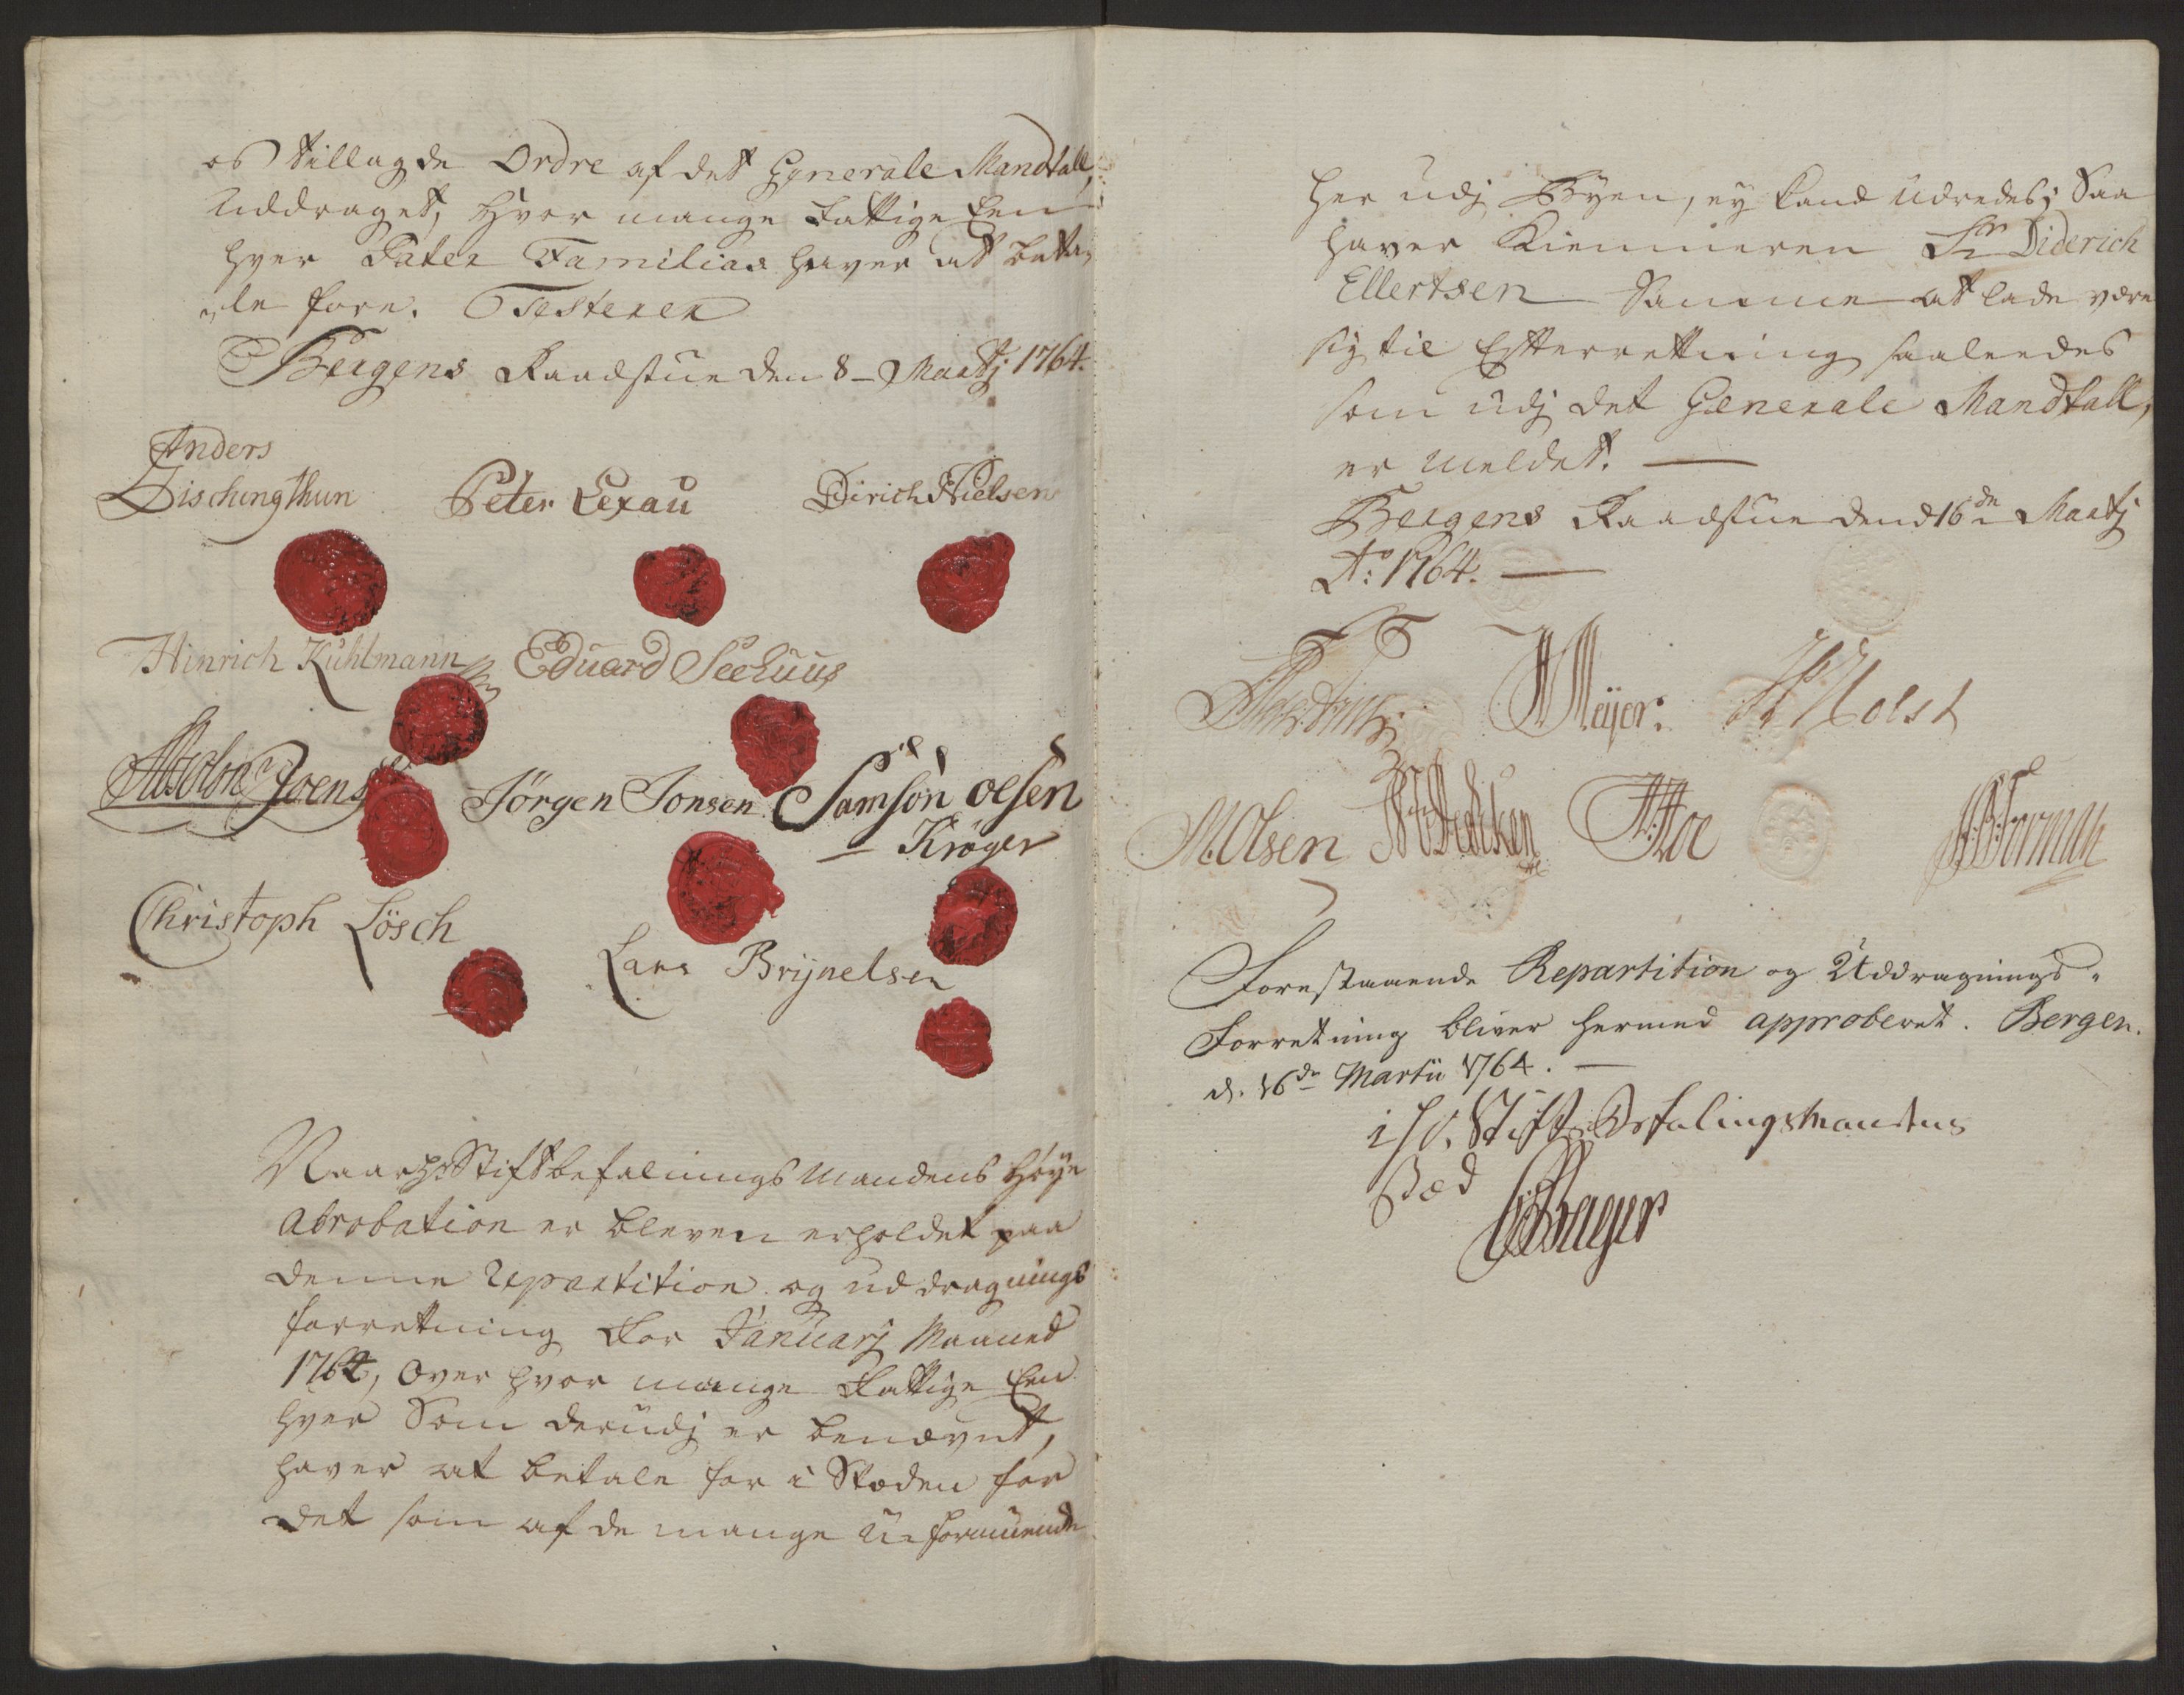 os tillagde Ordre af det Generale Mandtall,
Uddraget, Hvor mange Fattige Een
hver Pater Familias haver at beta,
,le fore. Testerer
Bergens Raadstue den 8 - Martj 1764.
Anders
Peter Lexau
Dirich Nielsen
Hinrich Kuhlmann
Eduard Seehuus
Joens
Jörgen Jonsen
Samson olsen
Kröger
Christoph Lösch
Lars Brÿnelsen
Naar Hr Stiftbefalnings Mandens Høye
Abrobation er bleven erholdet paa
denne Repartition og uddragnings
forretning For Januarj Maaned
1764, Over hvor mange Fattige Een
hver Som derudj er benævnt,
haver at betale for i Stæden for
det som af de mange Uformuende
her udj Byen, ey kand Udredes; Saa
haver Kiemneren Sr Diderich
Ellertsen Samme at lade være
sig til Efterretning saaleedes
som udj det Generale Mandtall,
er meldet.
Bergens Raadstue dend 16de Martj
Ao: 1764.
Meÿer:
Holst
M. Olsen
Forman
Forestaaende Repartition og Uddragnings-
Forretning bliver hermed approberet. Bergen.
d. 16de Martii 1764.
i Hr. Stift Befalingsmandens
Sted